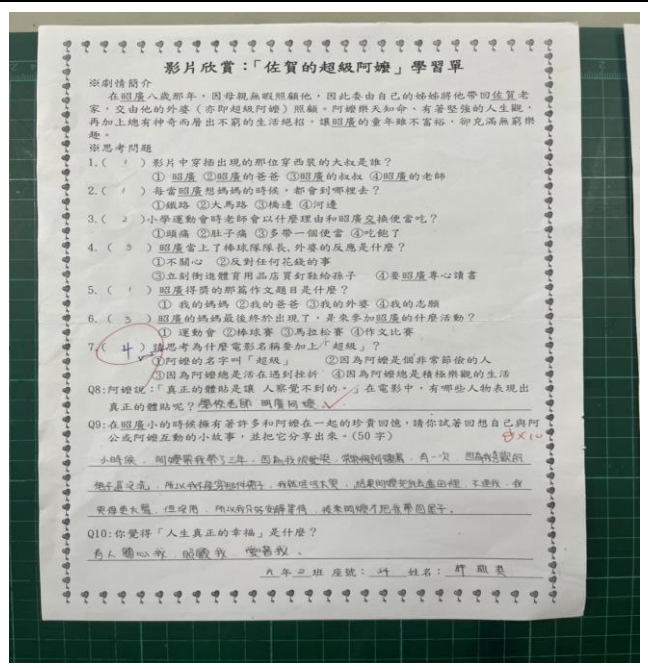 影片欣賞：「佐賀的超級阿嬤」學習單
※劇情簡介
在昭廣八歲那年，因母親無暇照顧他，因此委由自己的姊姊將他帶回佐賀老
家，交由他的外婆（亦即超級阿嬤）照顧。阿嬤樂天知命、有著堅強的人生觀，
再加上總有神奇而層出不窮的生活絕招，讓昭廣的童年雖不富裕，卻充滿無窮樂
趣。
※思考問題
1.( 1 ) 影片中穿插出現的那位穿西裝的大叔是誰？
① 昭廣 ②昭廣的爸爸 ③昭廣的叔叔 ④昭廣的老師
2.( 1 ) 每當昭廣想媽媽的時候，都會到哪裡去？
①鐵路 ②大馬路 ③橋邊 ④河邊
3.( 2 )小學運動會時老師會以什麼理由和昭廣交換便當吃？
①頭痛 ②肚子痛 ③多帶一個便當 ④吃飽了
4.( 3 ) 昭廣當上了棒球隊隊長,外婆的反應是什麼？
①不關心 ②反對任何花錢的事
③立刻衝進體育用品店買釘鞋給孫子 ④要昭廣專心讀書
5.( 1 ) 昭廣得獎的那篇作文題目是什麼？
① 我的媽媽 ②我的爸爸 ③我的外婆 ④我的志願
6.( 3 ) 昭廣的媽媽最後終於出現了，是來參加昭廣的什麼活動？
① 運動會 ②棒球賽 ③馬拉松賽 ④作文比賽
7.( 4 ) 請思考為什麼電影名稱要加上「超級」？
①阿嬤的名字叫「超級」 ②因為阿嬤是個非常節儉的人
③因為阿嬤總是活在遇到挫折 ④因為阿嬤總是積極樂觀的生活
Q8:阿嬤說：「真正的體貼是讓 人察覺不到的。」在電影中，有哪些人物表現出
真正的體貼呢？學校老師 阿嬤
Q9:在昭廣小的時候擁有著許多和阿嬤在一起的珍貴回憶，請你試著回想自己與阿
公或阿嬤互動的小故事，並把它分享出來。(50 字)
小時候，阿嬤帶我帶了三年，因為我很愛哭，常常惹阿嬤生氣，有一次，因為我喜歡的
褲子還沒洗，所以我不能穿那件褲子，我就一直大哭，結果阿嬤把我丟進田裡，不理我，我
哭得更大聲，但沒用，所以我只好安靜等待，後來阿嬤才把我帶回屋子。
Q10:你覺得「人生真正的幸福」是什麼？
有人關心我，照顧我，愛著我。
九 年 2 班 座號： 24 姓名：